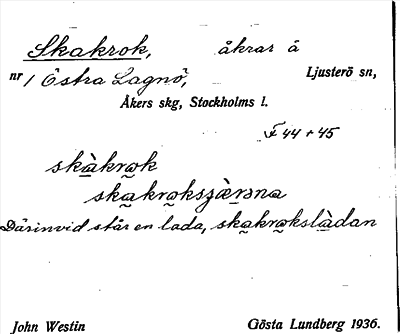 Skakrok, åkrar å
nr 1 Östra Lagnö, Ljusterö sn,
Åkers skg, Stockholms l.
F 44 + 45
skàkrok
skakroksjæ̀rəna
Därinvid står en lada, skakrokslàdan
John Westin Gösta Lundberg 1936.